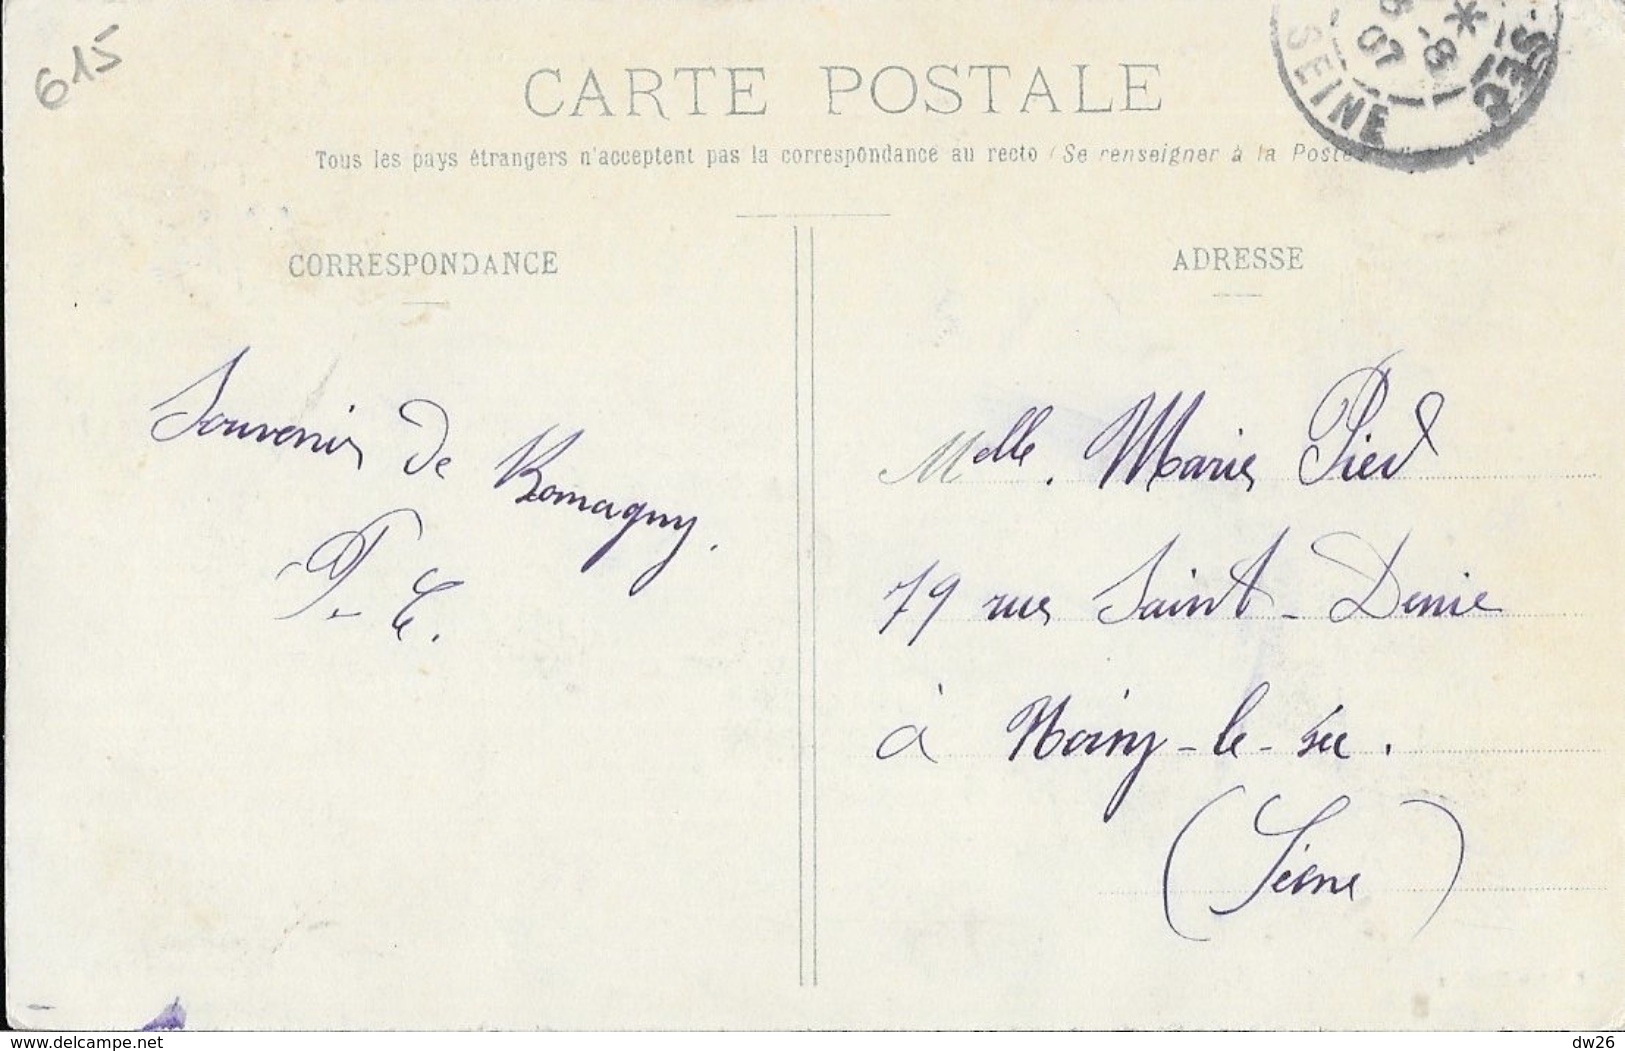 615
CARTE POSTALE
Tous les pays étrangers n'acceptent pas la correspondance au recto (Se renseigner à la Poste
SEINE
07
SEC
CORRESPONDANCE
ADRESSE
Souvenir de Romagny.
P. C.
Melle. Marie Pied
79 rue Saint-Denie
à Noisy-le-sec.
(Seine)
www.delcampe.net
dw26